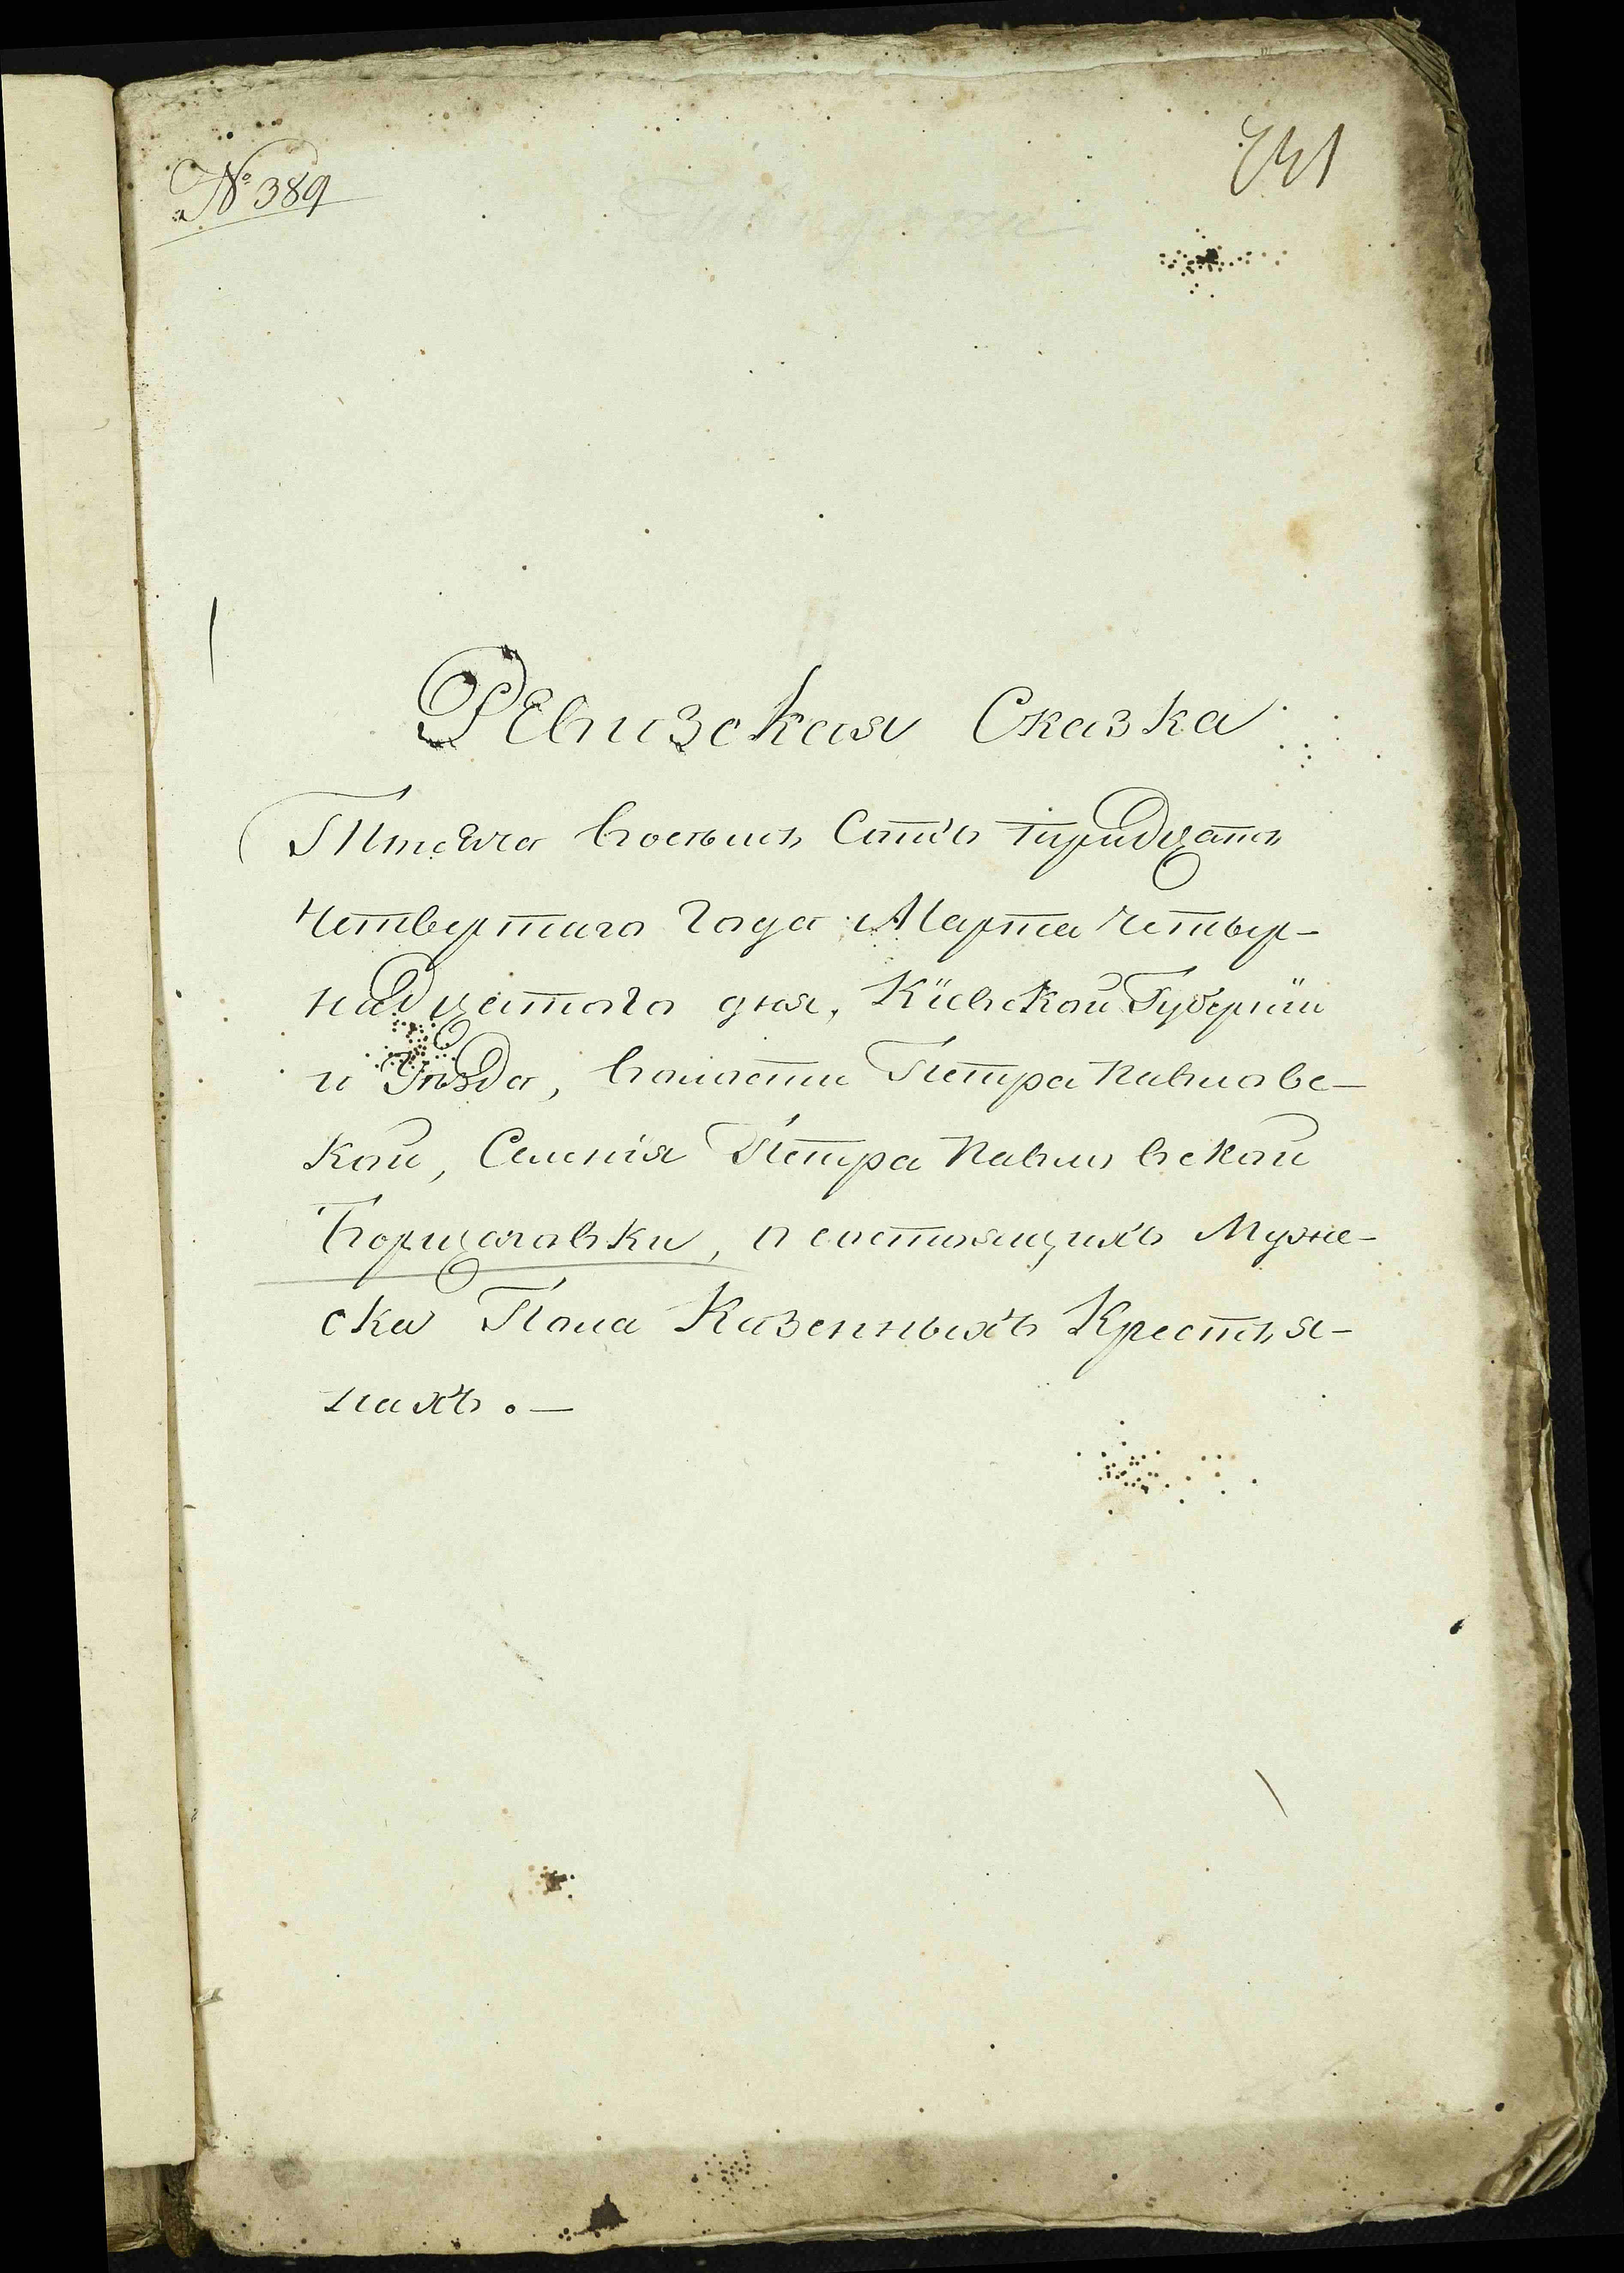 № 389
Ревизская Сказка
Тысяча восемь Сотъ тридцать
Четвертаго Года Марта четвер-
надцатого дня, Кіевской Губерніи
и Уѣзда, волости Петра Павловс-
кой, Селенія Петра Павловской
Борщаговки, о состоящихъ Муже-
ска Пола Казенныхъ Крестья-
нахъ. —